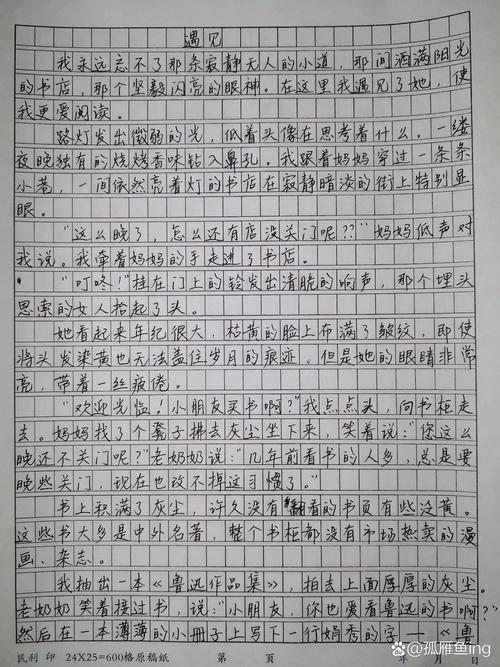 遇见
我永远忘不了那条寂静无人的小道，那间洒满阳光
的书店，那个坚毅闪亮的眼神。在这里我遇见了她，使
我更爱阅读。
路灯发出微弱的光，低着头像在思考着什么。一缕
夜晚独有的烧烤香味钻入鼻孔。我跟着妈妈穿过一条条
小巷，一间依然亮着灯的书店在寂静暗淡的街上特别显
眼。
“这么晚了，怎么还有店没关门呢??”妈妈低声对
我说。我牵着妈妈的手走进了书店。
“叮咚!”挂在门上的铃发出清脆的响声，那个埋头
思索的女人抬起了头。
她看起来年纪很大，枯黄的脸上布满了皱纹，即使
将头发染黄也无法盖住岁月的痕迹。但是她的眼睛非常
亮，带着一丝疲倦。
“欢迎光临!小朋友买书啊?”我点点头，向书柜走
去。妈妈找了个凳子拂去灰尘坐下来，笑着说:“您这么
晚还不关门呢?”老奶奶说:“几年前看书的人多，总是要
晚些关门，现在也改不掉这习惯了。”
书上积满了灰尘，许久没有翻看的书页有些泛黄。
这些书大多是中外名著，整个书柜都没有市场热卖的漫
画、杂志。
我抽出一本《鲁迅作品集》，拍去上面厚厚的灰尘。
老奶奶笑着接过书，说:“小朋友，你也爱看鲁迅的书啊?
然后在一本薄薄的小册子上写下一行娟秀的字——《鲁
民利 印 24X25=600格原稿纸 第 页 年 月 日
@孤雁鱼ing